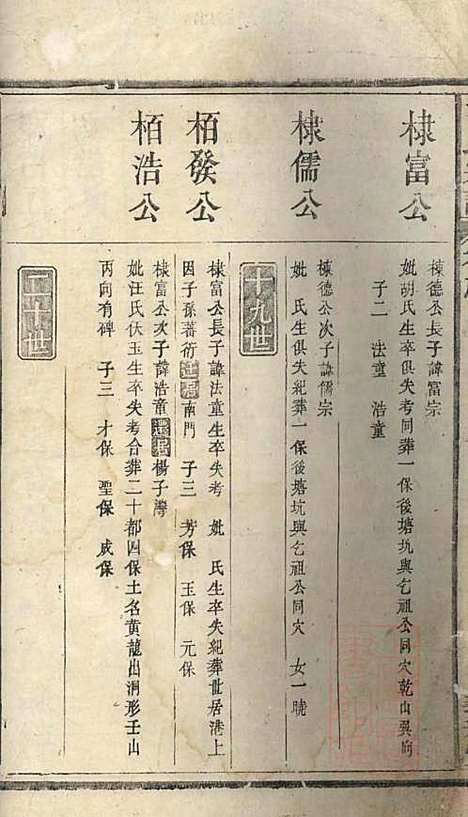 棣富公
棣德公長子諱富宗
妣胡氏生卒俱失考同葬一保後塘坑與乞祖公同穴乾山巽向
子二 法童 浩童
棣儒公
棣德公次子諱儒宗
妣 氏生俱失紀葬一保後塘坑與乞祖公同穴 女一曉
十九世
栢發公
棣富公長子諱法童生卒失考 妣 氏生卒失紀葬世居港上
因子孫蕃衍迁居南門 子三 芳保 玉保 元保
栢浩公
棣富公次子諱浩童迁居楊子灣
妣汪氏伏玉生卒失考合葬二十都四保土名黄龍出洞形壬山
丙向有碑 子三 才保 聖保 咸保
二十世